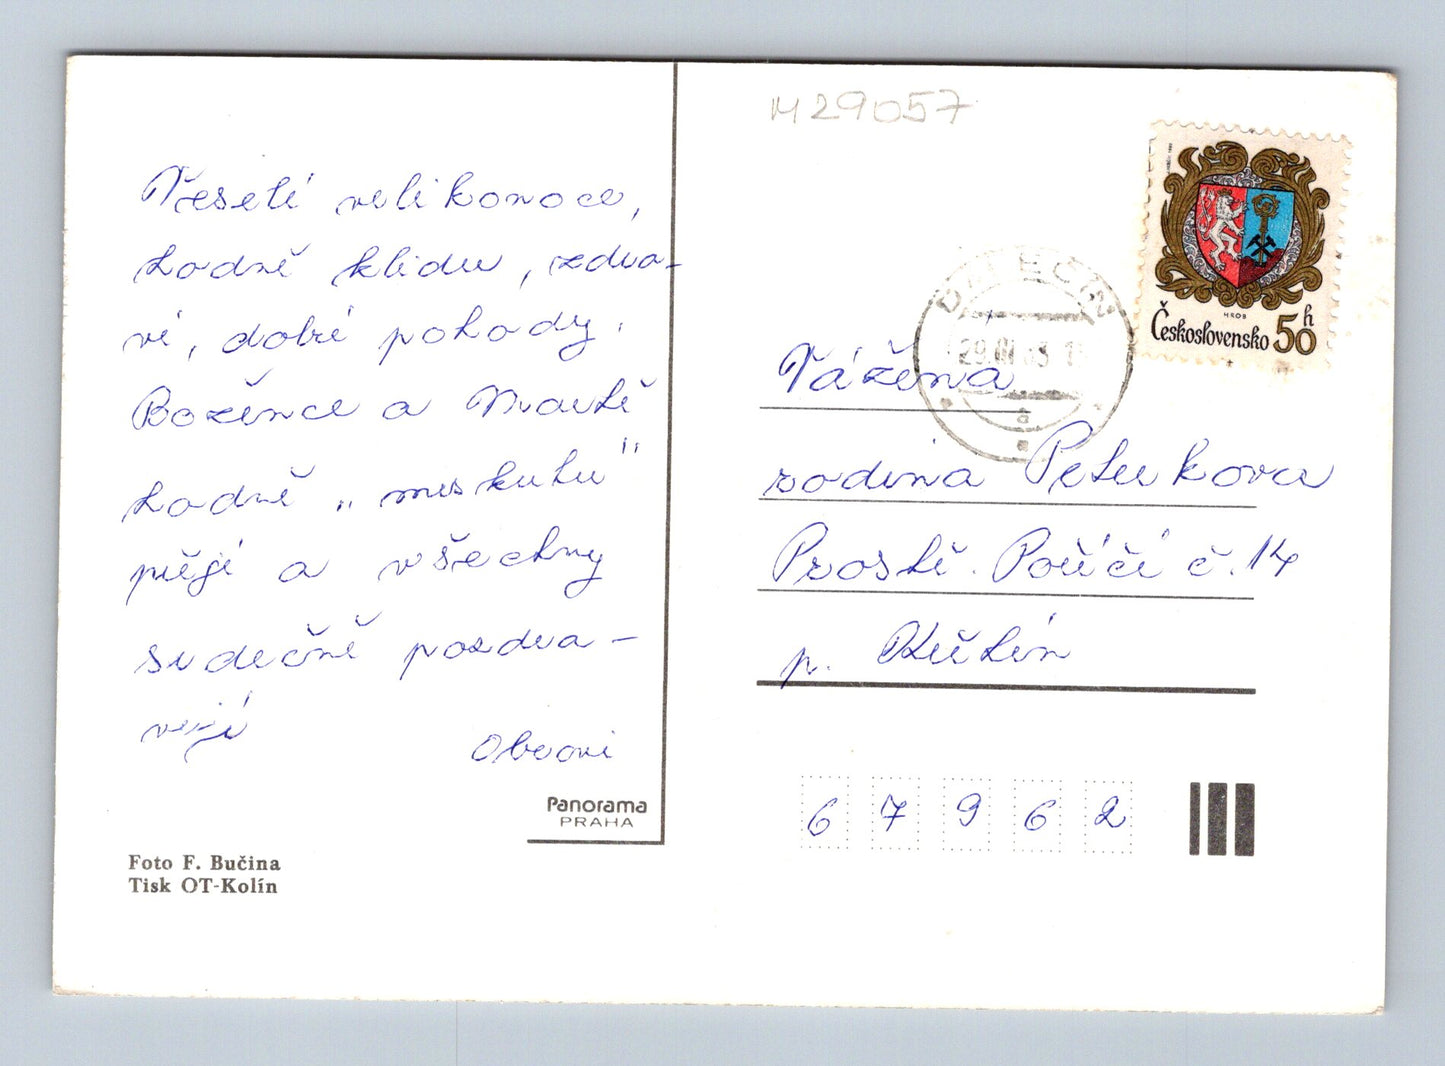 M29057
Veselé velikonoce,
hodně klidu, zdra-
ví, dobré pohody.
Božence a Martě
hodně „mrskutu"
přejí a všechny
srdečně pozdra-
vují
Obrovi
Panorama
PRAHA
Foto F. Bučina
Tisk OT-Kolín
HROB
Československo 50h
DALEČÍN
29.III
Vážená
rodina Peterkova
Prostř. Poříčí č. 14
p. Křtín
67962